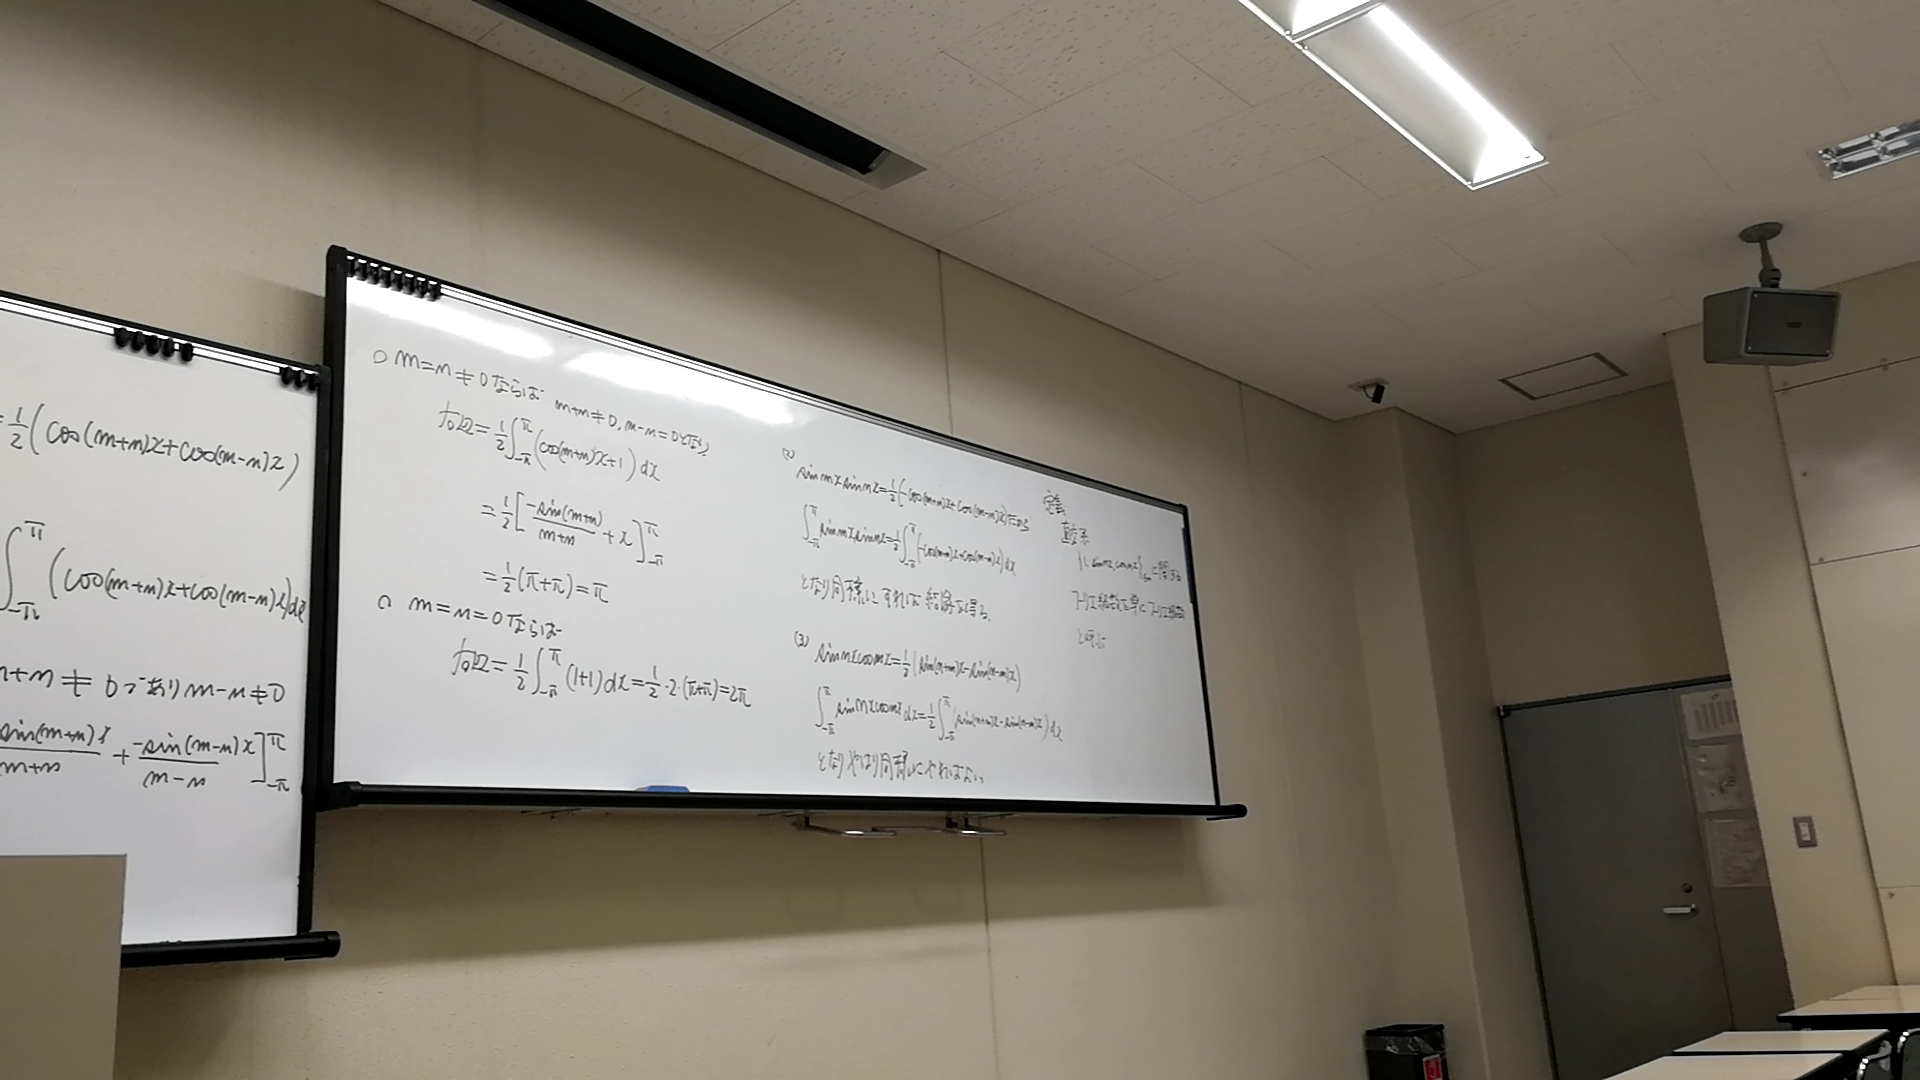 =1/2(cos(m+n)x+cos(m-n)x)
∫_{-π}^{π}(cos(m+n)x+cos(m-n)x)dx
m+n≠0であり m-n≠0
sin(m+n)x/(m+n) + -sin(m-n)x/(m-n)]_{-π}^{π}
○ m=n≠0ならば m+n≠0, m-n=0となり
左辺=1/2∫_{-π}^{π}(cos(m+n)x+1)dx
=1/2[-sin(m+n)/(m+n)+x]_{-π}^{π}
=1/2(π+π)=π
○ m=n=0ならば
左辺=1/2∫_{-π}^{π}(1+1)dx=1/2・2・(π+π)=2π
(2)
sin mx sin nx=1/2(-cos(m+n)x+cos(m-n)x)だから
∫_{-π}^{π}sin mx sin nx=1/2∫_{-π}^{π}(-cos(m+n)x+cos(m-n)x)dx
となり同様にすれば結論を得る。
(3)
sin nx cos mx=1/2(sin(n+m)x-sin(n-m)x)
∫_{-π}^{π}sin nx cos mx dx=1/2∫_{-π}^{π}(sin(n+m)x-sin(n-m)x)dx
となりやはり同様にやればよい
定義
直交系
{1, sin nx, cos nx} に関する
フーリエ級数を単にフーリエ級数
と呼ぶ